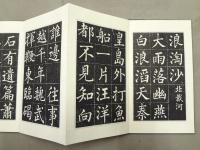 浪淘沙 北戴河
大雨落幽燕
白浪滔天秦
皇島外打魚
船一片汪洋
都不見知向
誰邊 往事
越千年魏武
揮鞭東臨碣
石有遺篇蕭